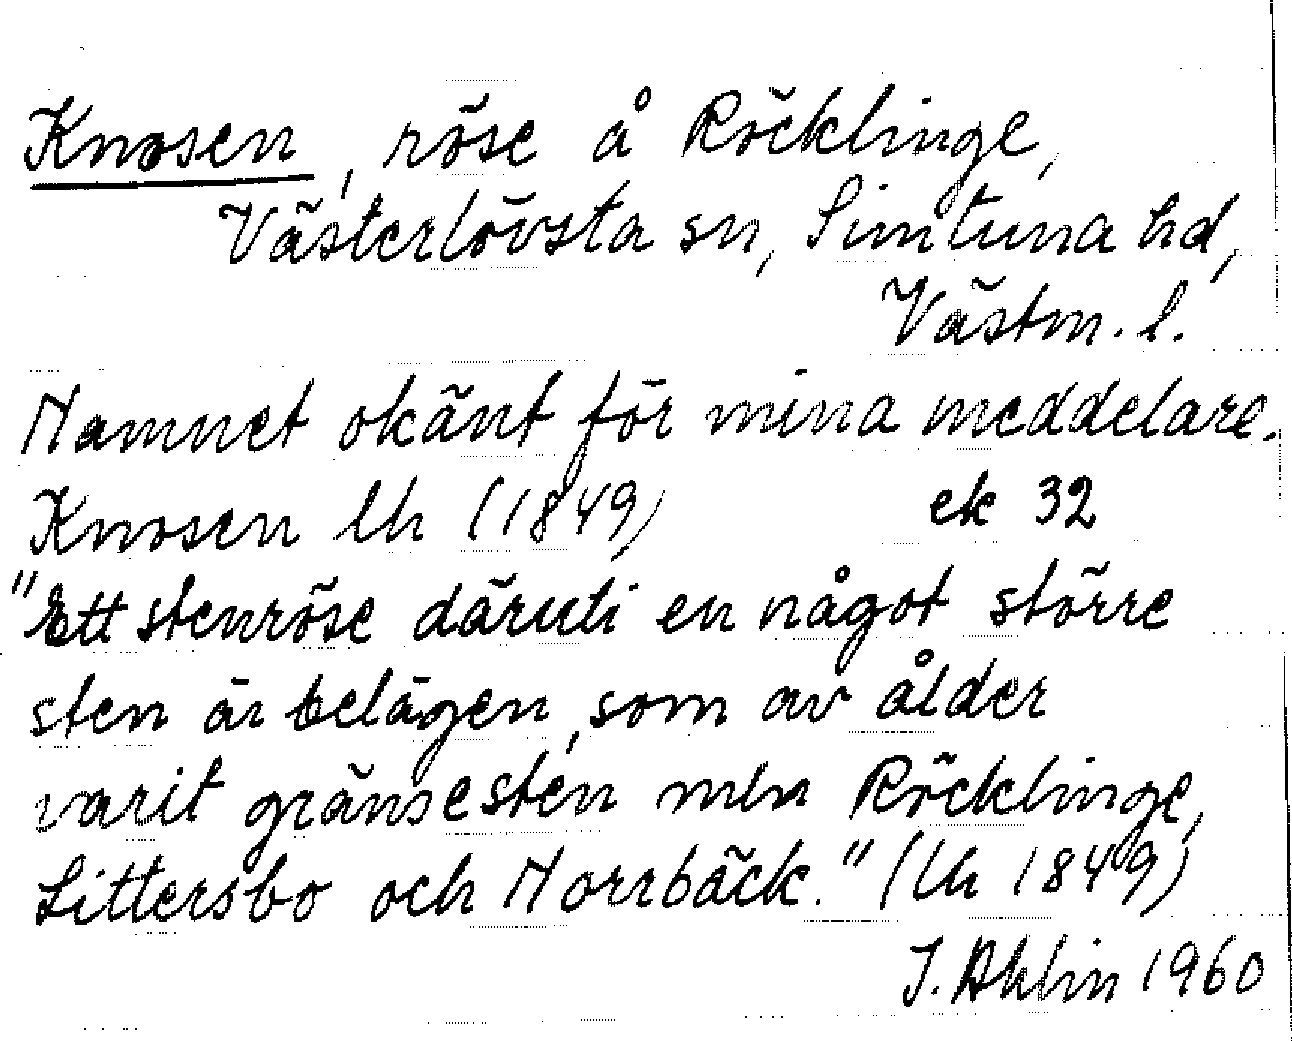 Knosen, röse å Röcklinge,
Västerlövsta sn, Simtuna hd,
Västm. l.
Namnet okänt för mina meddelare.
Knosen lh (1849) ek 32
"Ett stenröse däruti en något större
sten är belägen, som av ålder
varit gränsesten mln Röcklinge,
Littersbo och Norrbäck." (lh 1849)
J. Ahlin 1960